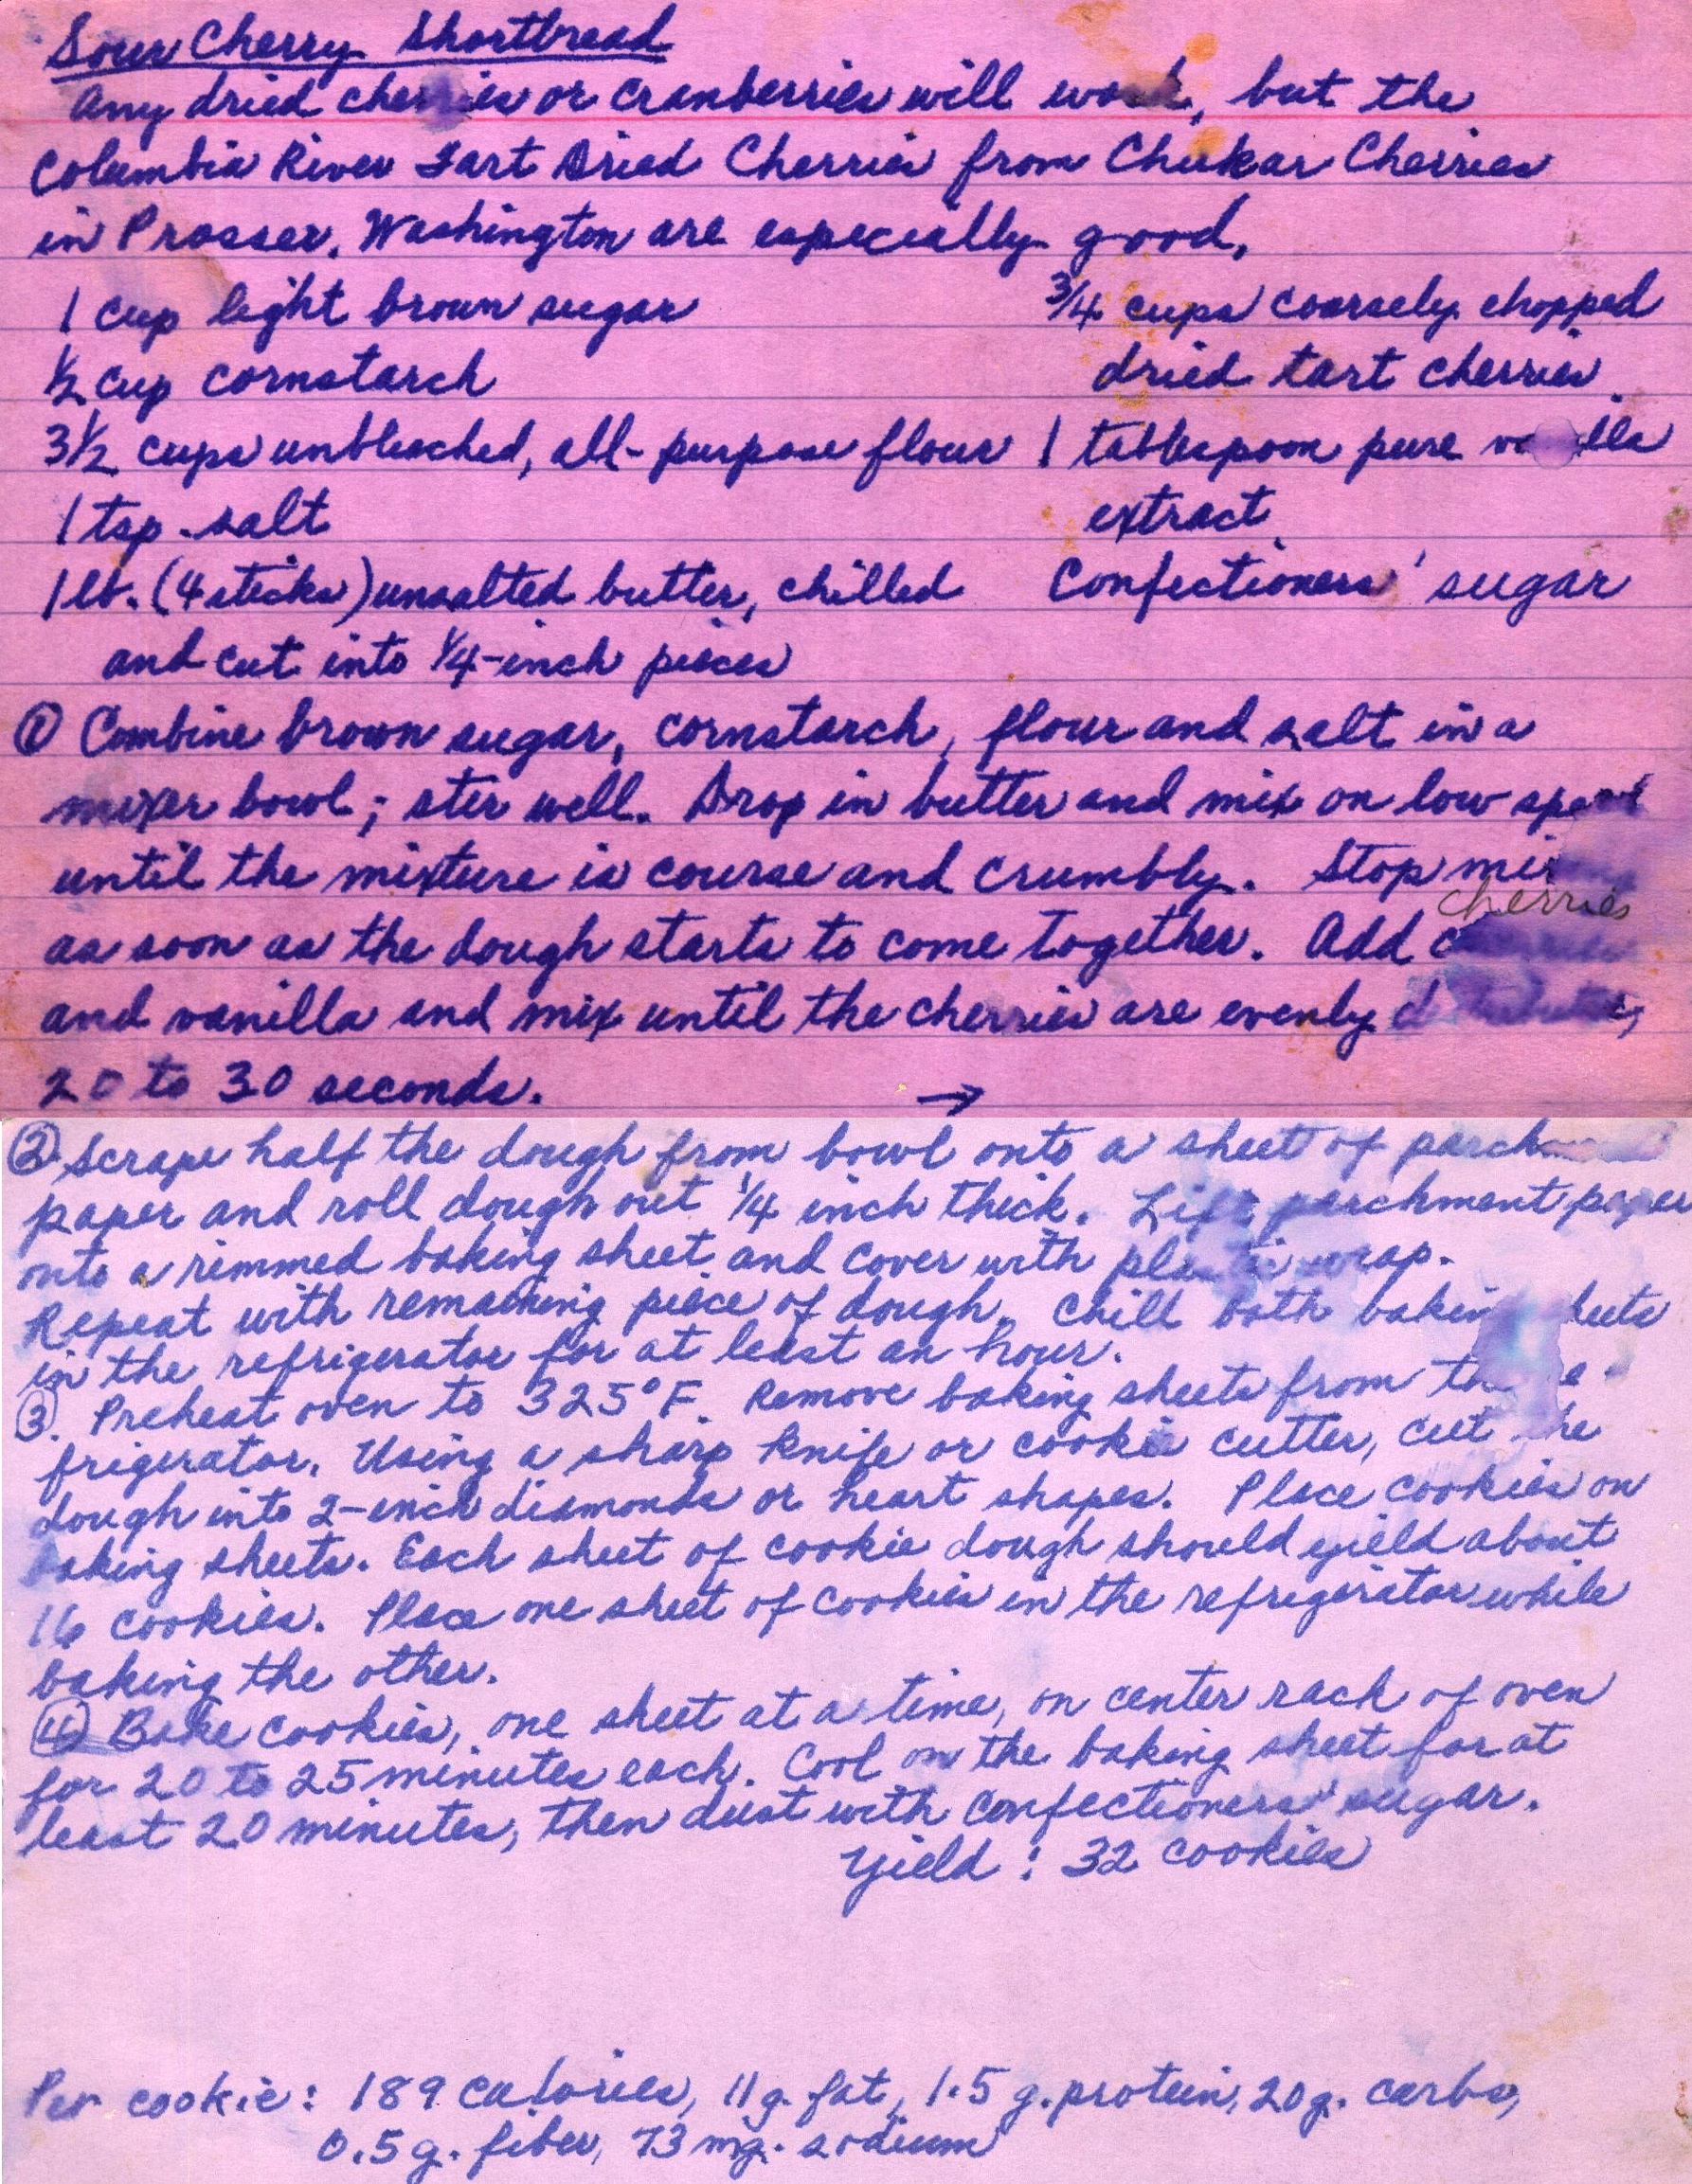 Sour Cherry Shortbread
Any dried cherries or cranberries will work, but the
Columbia River Tart Dried Cherries from Chukar Cherries
in Prosser, Washington are especially good.
1 cup light brown sugar
½ cup cornstarch
3½ cups unbleached, all-purpose flour
1 tsp. salt
1 lb. (4 sticks) unsalted butter, chilled
and cut into ¼-inch pieces
¾ cups coarsely chopped
dried tart cherries
1 tablespoon pure vanilla
extract
Confectioners' sugar
① Combine brown sugar, cornstarch, flour and salt in a
mixer bowl; stir well. Drop in butter and mix on low speed
until the mixture is course and crumbly. Stop mixing
cherries
as soon as the dough starts to come together. Add cherries
and vanilla and mix until the cherries are evenly distributed,
20 to 30 seconds. →
② Scrape half the dough from bowl onto a sheet of parchment
paper and roll dough out ¼ inch thick. Lift parchment paper
onto a rimmed baking sheet and cover with plastic wrap.
Repeat with remaining piece of dough. Chill both baking sheets
in the refrigerator for at least an hour.
③. Preheat oven to 325°F. Remove baking sheets from the re-
frigerator. Using a sharp knife or cookie cutter, cut the
dough into 2-inch diamonds or heart shapes. Place cookies on
baking sheets. Each sheet of cookie dough should yield about
16 cookies. Place one sheet of cookies in the refrigerator while
baking the other.
④ Bake cookies, one sheet at a time, on center rack of oven
for 20 to 25 minutes each. Cool on the baking sheet for at
least 20 minutes, then dust with confectioners' sugar.
Yield: 32 cookies
Per cookie: 189 calories, 11g. fat, 1.5 g. protein, 20g. carbs,
0.5g. fiber, 73 mg. sodium